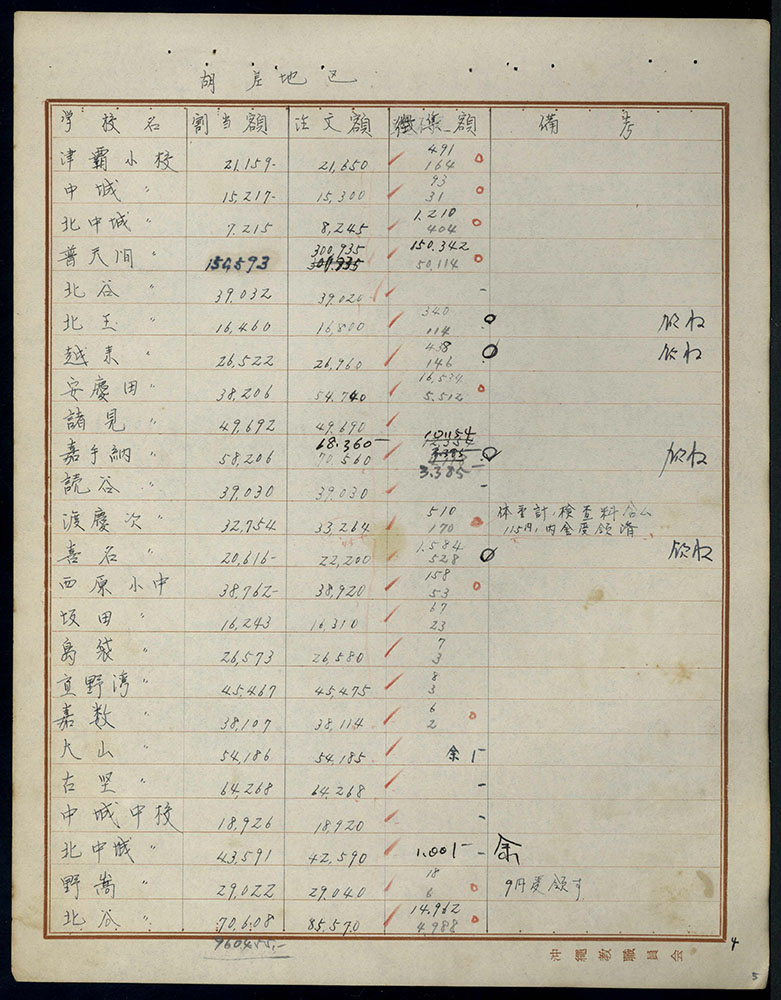 胡差地区
学校名 割当額 注文額 徴集額 備考
491
津覇小校 21,159- 21,650 164
93
中城 〃 15,217- 15,300 31
1.210
北中城 〃 7.215 8,245 404
300,935 150,342
普天间 〃 150,593 50,114
北谷 〃 39,032 39,020 -
340
北玉 〃 16,460 16,800 114
438
越来 〃 26,522 26,960 146
16,534
安慶田 〃 38,206 54,740 5.512
諸見 〃 49,692 49,690
68.360-
嘉手納 〃 58,206 70,560 3.385-
読谷 〃 39,030 39,030 -
510 体重計,検査料
渡慶次 〃 32,754 33,264 170 115円,内金度領済
1.584
喜名 〃 20,616- 22,200 528
158
西原小中 38,762- 38,920 53
67
坂田 〃 16,243 16,310 23
7
島袋 〃 26,573 26,580 3
8
宜野湾 〃 45,467 45,475 3
6
嘉数 〃 38,107 38,114 2
大山 〃 54,186 54,185 余 1-
古堅 〃 64,268 64,268 -
中城中校 18,926 18,920 -
北中城 〃 43,591 42,590 1,001- 余
18
野嵩 〃 29,022 29,040 6 9月度領す
14,962
北谷 〃 70,608 85,570 4,988
960455.-
沖繩教職員会
4
5